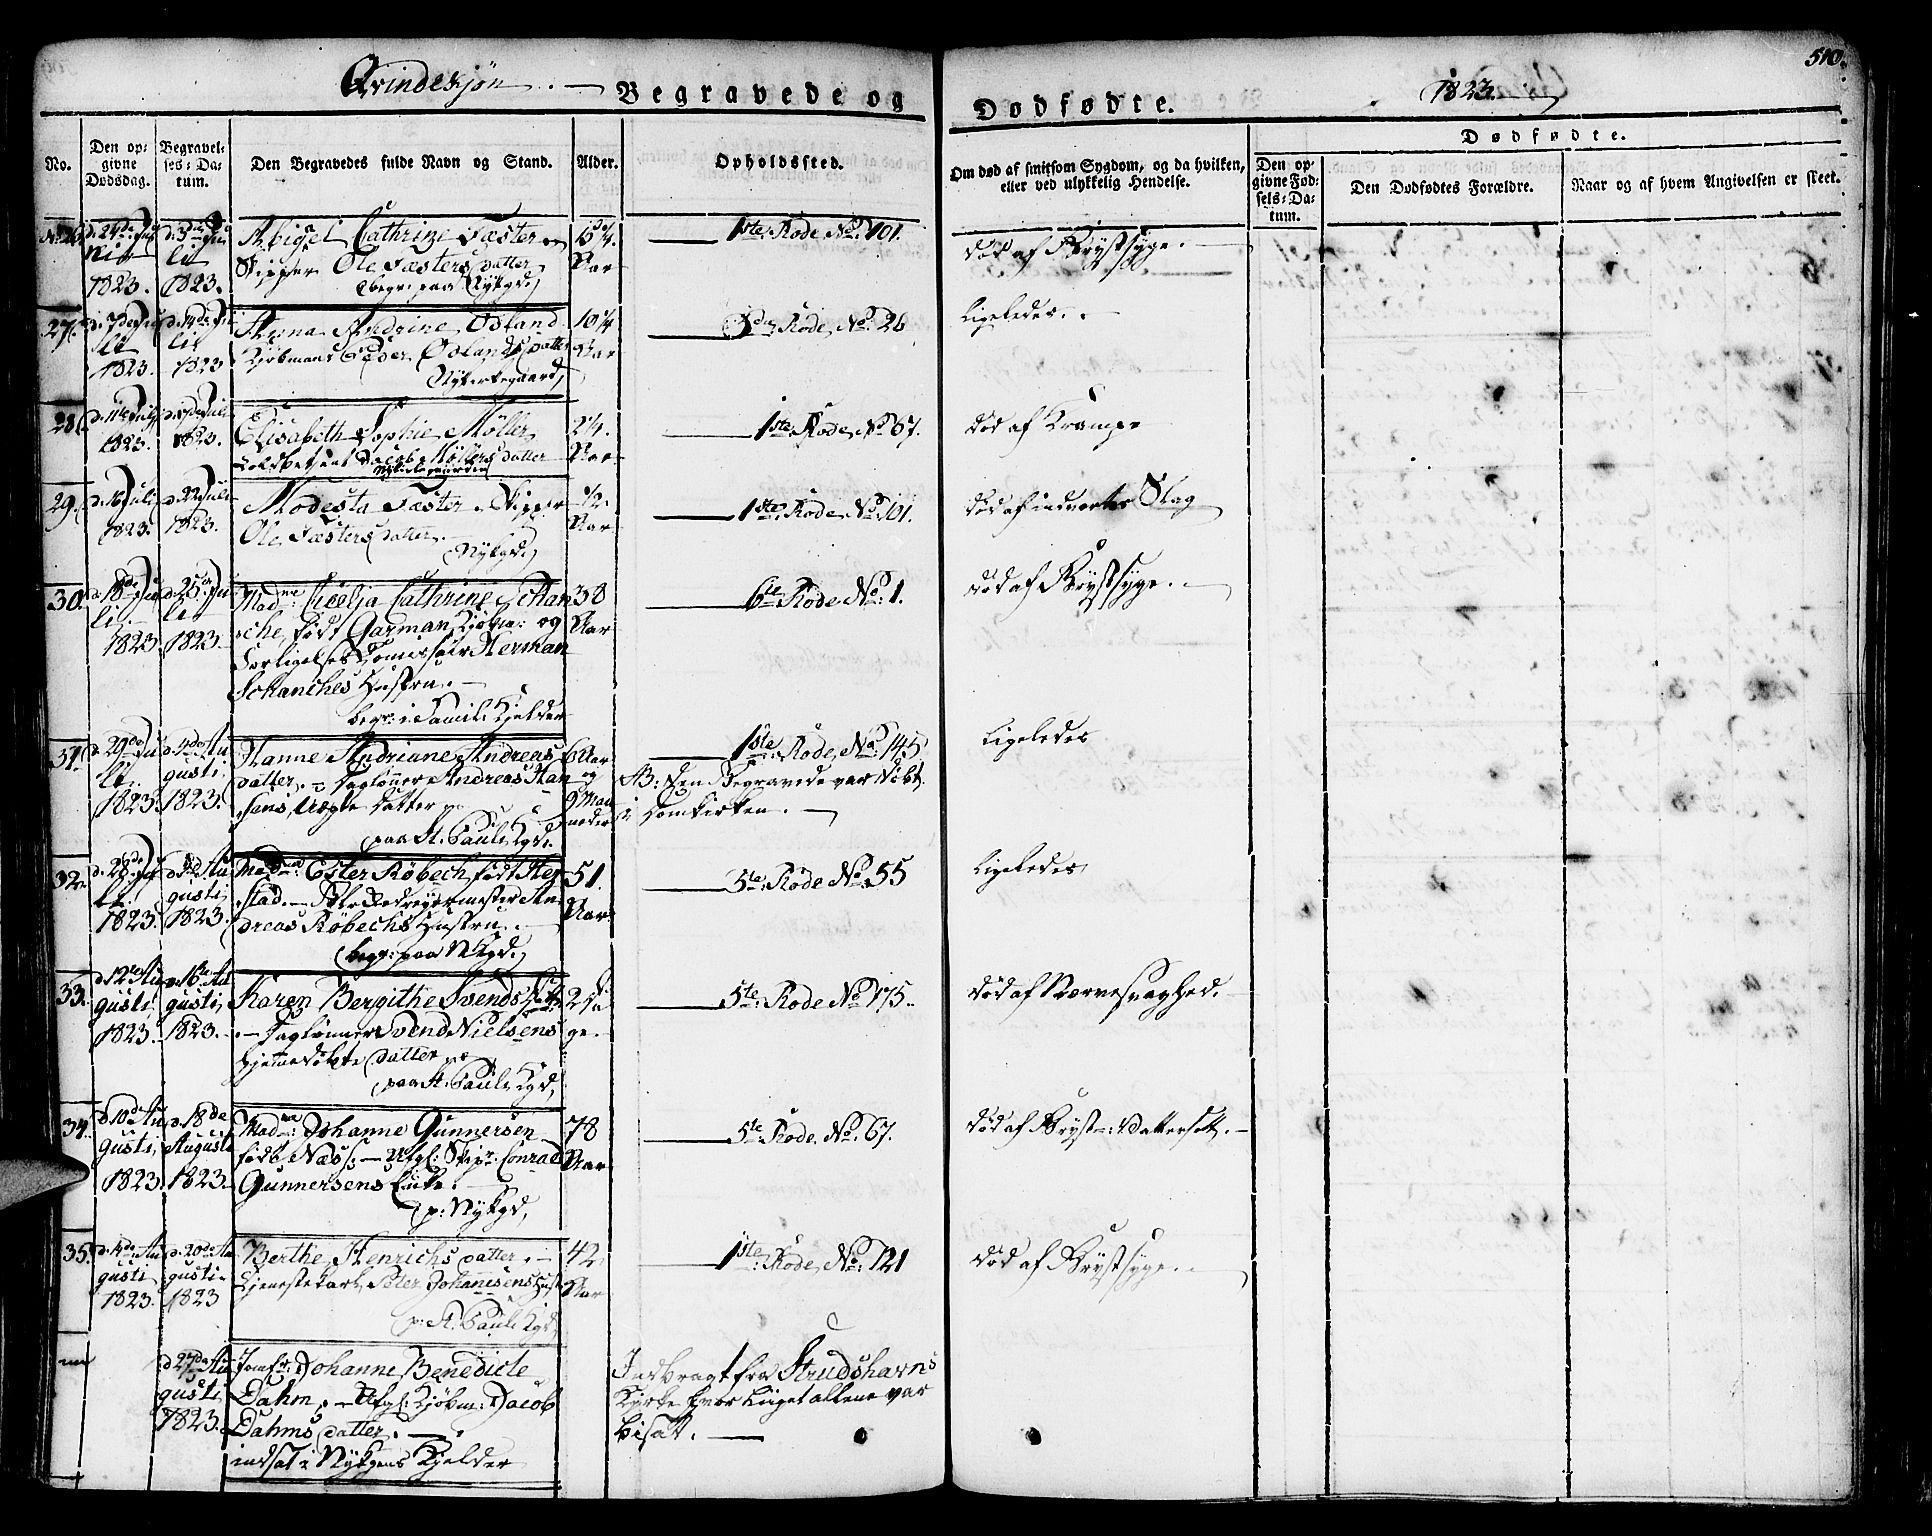 Qvindekjøn. — Begravede og
Dødfødte. 1823. 510.
No.
Den op-
givne
Dødsdag.
Begravel-
ses-Da-
tum.
Den Begravedes fulde Navn og Stand.
Alder.
Opholdssted.
Om død af smitsom Sygdom, og da hvilken,
eller ved ulykkelig Hendelse.
Dødfødte.
Den op-
givne Fød-
sels-Da-
tum.
Den Dødfødtes Forældre.
Naar og af hvem Angivelsen er skeet.
No 26
d. 24de Ju
nii
1823.
d. 3de Ju
lii
1823.
Abigel Cathrine Fæster
Skipper Ole Fæsters Datter
begr: paa Nykgd.
Aar
1ste Rode No. 101.
død af Brystsyge. —
27.
d. 7de Ju
lii
1823.
d. 14de Ju
lii
1823
Anna Andrine Odland
Kjøbmand Peder Odlands Datter
Nykirkegaard
10 1/4
Aar
3die Rode No. 26
Ligeledes. —
28.
d. 11te Julii
1823.
d. 17de Julii
1823.
Elisabeth Sophie Møller
Jacob Møllers Datter
Nykirkegaarden
2 1/4.
Aar
1ste Rode No 67.
død af Krampe
29.
d. 16 Julii
1823.
d. 22 Julii
1823.
Modesta Fæster. Skipper
Ole Fæsters Datter. —
Nykgd.
1/2.
Aar
1ste Rode No. 101.
død af indvortes Slag
30.
d. 18de Ju
lii. —
1823.
d. 25de Ju
lii
1823.
Madme Cicelja Cathrine Schan
sche, født Garman, Kjøbm: og
Forligelses Commissair Herman
Schanches Hustru. —
begr: i Famili Kjelder
38
Aar
6te Rode No. 1.
død af Brystsyge. —
31.
d. 29de Ju
lii.
1823.
d. 4de Au
gusti.
1823.
Hanne Andriane Andreas
datter. — Dagløner Andreas Han
sens, Ægte Datter
paa St. Pauli Kgd.
6 Aar
og
9 Maa
neder
1ste Rode, No. 145
NB: Den Begravede var døbt
i Domkirken. —
Ligeledes
32.
d. 28de Ju
lii.
1823.
d. 5te Au
gusti
1823.
Madme Ester Røbech, født Hey
stad. — Blokkedreyermester An
dreas Røbechs Hustru. —
begr: paa N Kgd.
51.
Aar
5te Rode No. 55
Ligeledes
33.
d. 12te Au
gusti,
1823.
d. 16de Au
gusti,
1823.
Karen Bergithe Svends Datt:
— Dagløner Svend Nielsens
hjemmedøbte Datter
paa St. Pauli Kgd,
2 Da
ge.
5te Rode No 175.
død af Nervesvaghed.
34.
d. 10de Au
gusti,
1823.
d. 18de
Augusti
1823.
Madme Johanne Gunnersen
født Næss; — Afgl: Skipr. Conrad
Gunnersens Enke. —
p: Nykgd,
78
Aar
5te Rode. No. 67.
død af Bryst- Vattersot. —
35.
d. 14de Au
gusti
1823.
d. 20de Au
gusti
1823
Berthe Henrichs datter. —
Tjenestekarl Peter Johannesens Hust
p: St. Pauli Kgd.
42
Aar
1ste Rode, No: 121
død af Brystsyge. —
d 27de Au
gusti
1823.
Jomfr: Johanne Benedicte
Dahm. — Afgl: Kjøbm: Jacob
Dahms Datter. —
indsat i Nykgens Kjelder
Indbragt fra Strudshavns
Kirke hvor Liiget allene var
bisatt. —